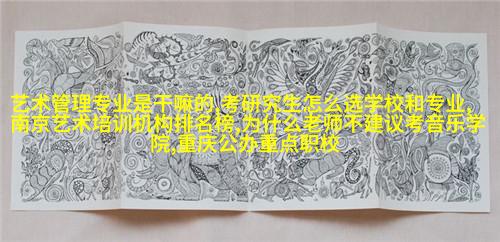 艺术管理专业是干嘛的,考研究生怎么选学校和专业,
南京艺术培训机构排名榜,为什么老师不建议考音乐学
院,重庆公办重点职校